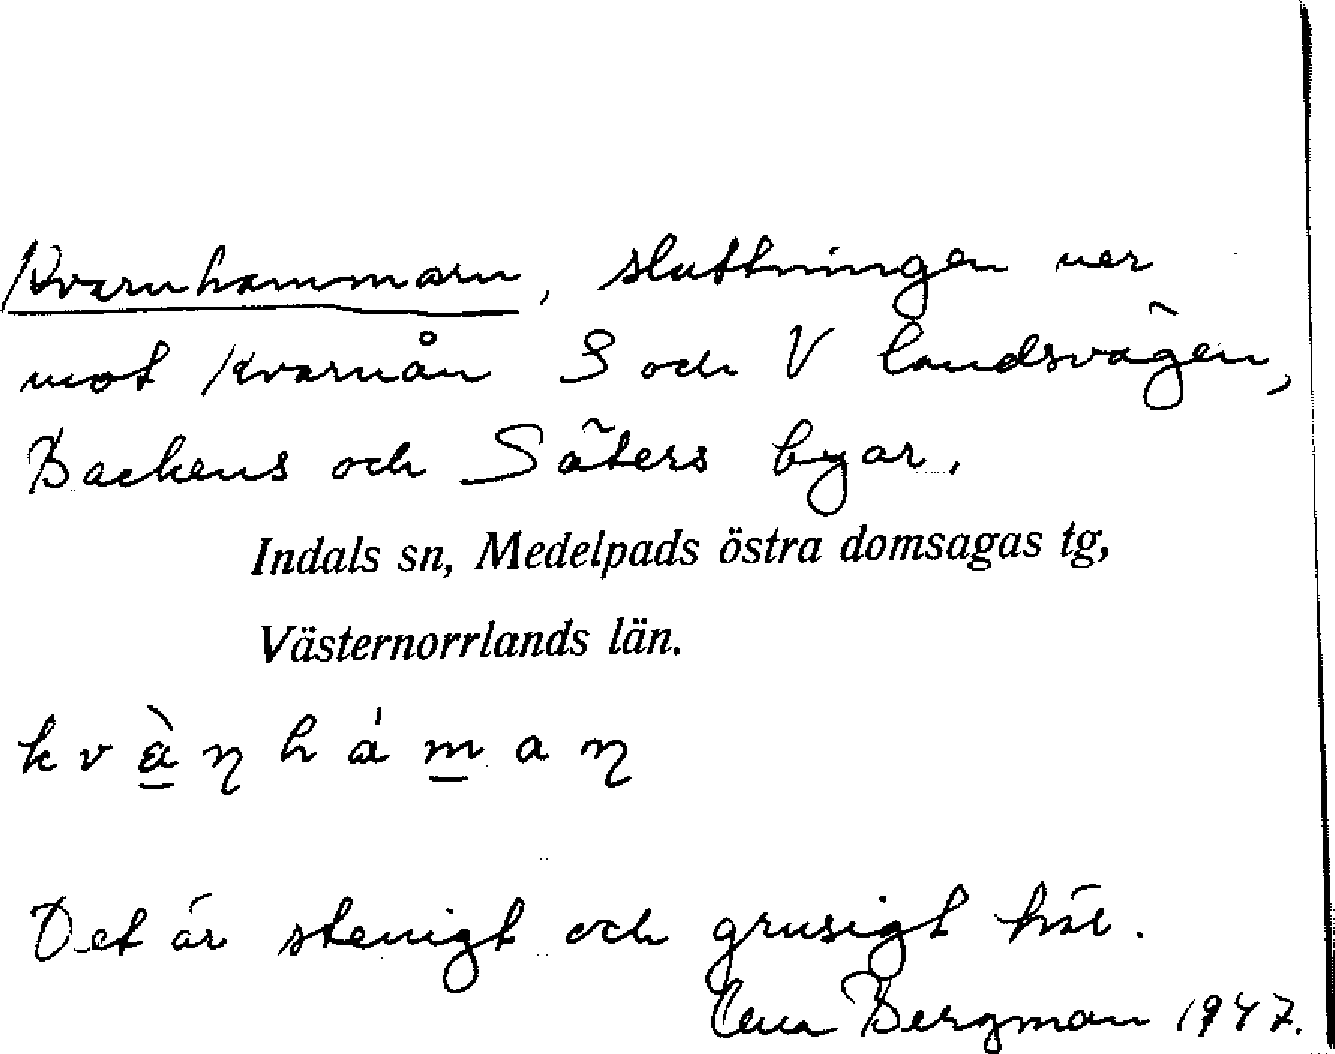 Kvarnhammarn, sluttningen ner
mot Kvarnån S och V landsvägen,
Backens och Säters byar.
Indals sn, Medelpads östra domsagas tg,
Västernorrlands län.
kvàṇháman̩
Det är stenigt och grusigt här.
Bergman 1947.